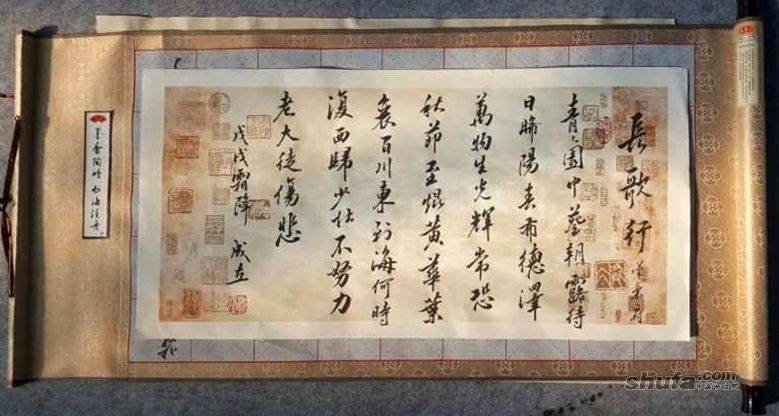 長歌行
青〻園中葵朝露待
日晞陽春布德澤
萬物生光輝常恐
秋節至焜黃華葉
衰百川東到海何時
復西歸少壯不努力
老大徒傷悲
戊戌霜降 成立
墨香陶情
shufa.com